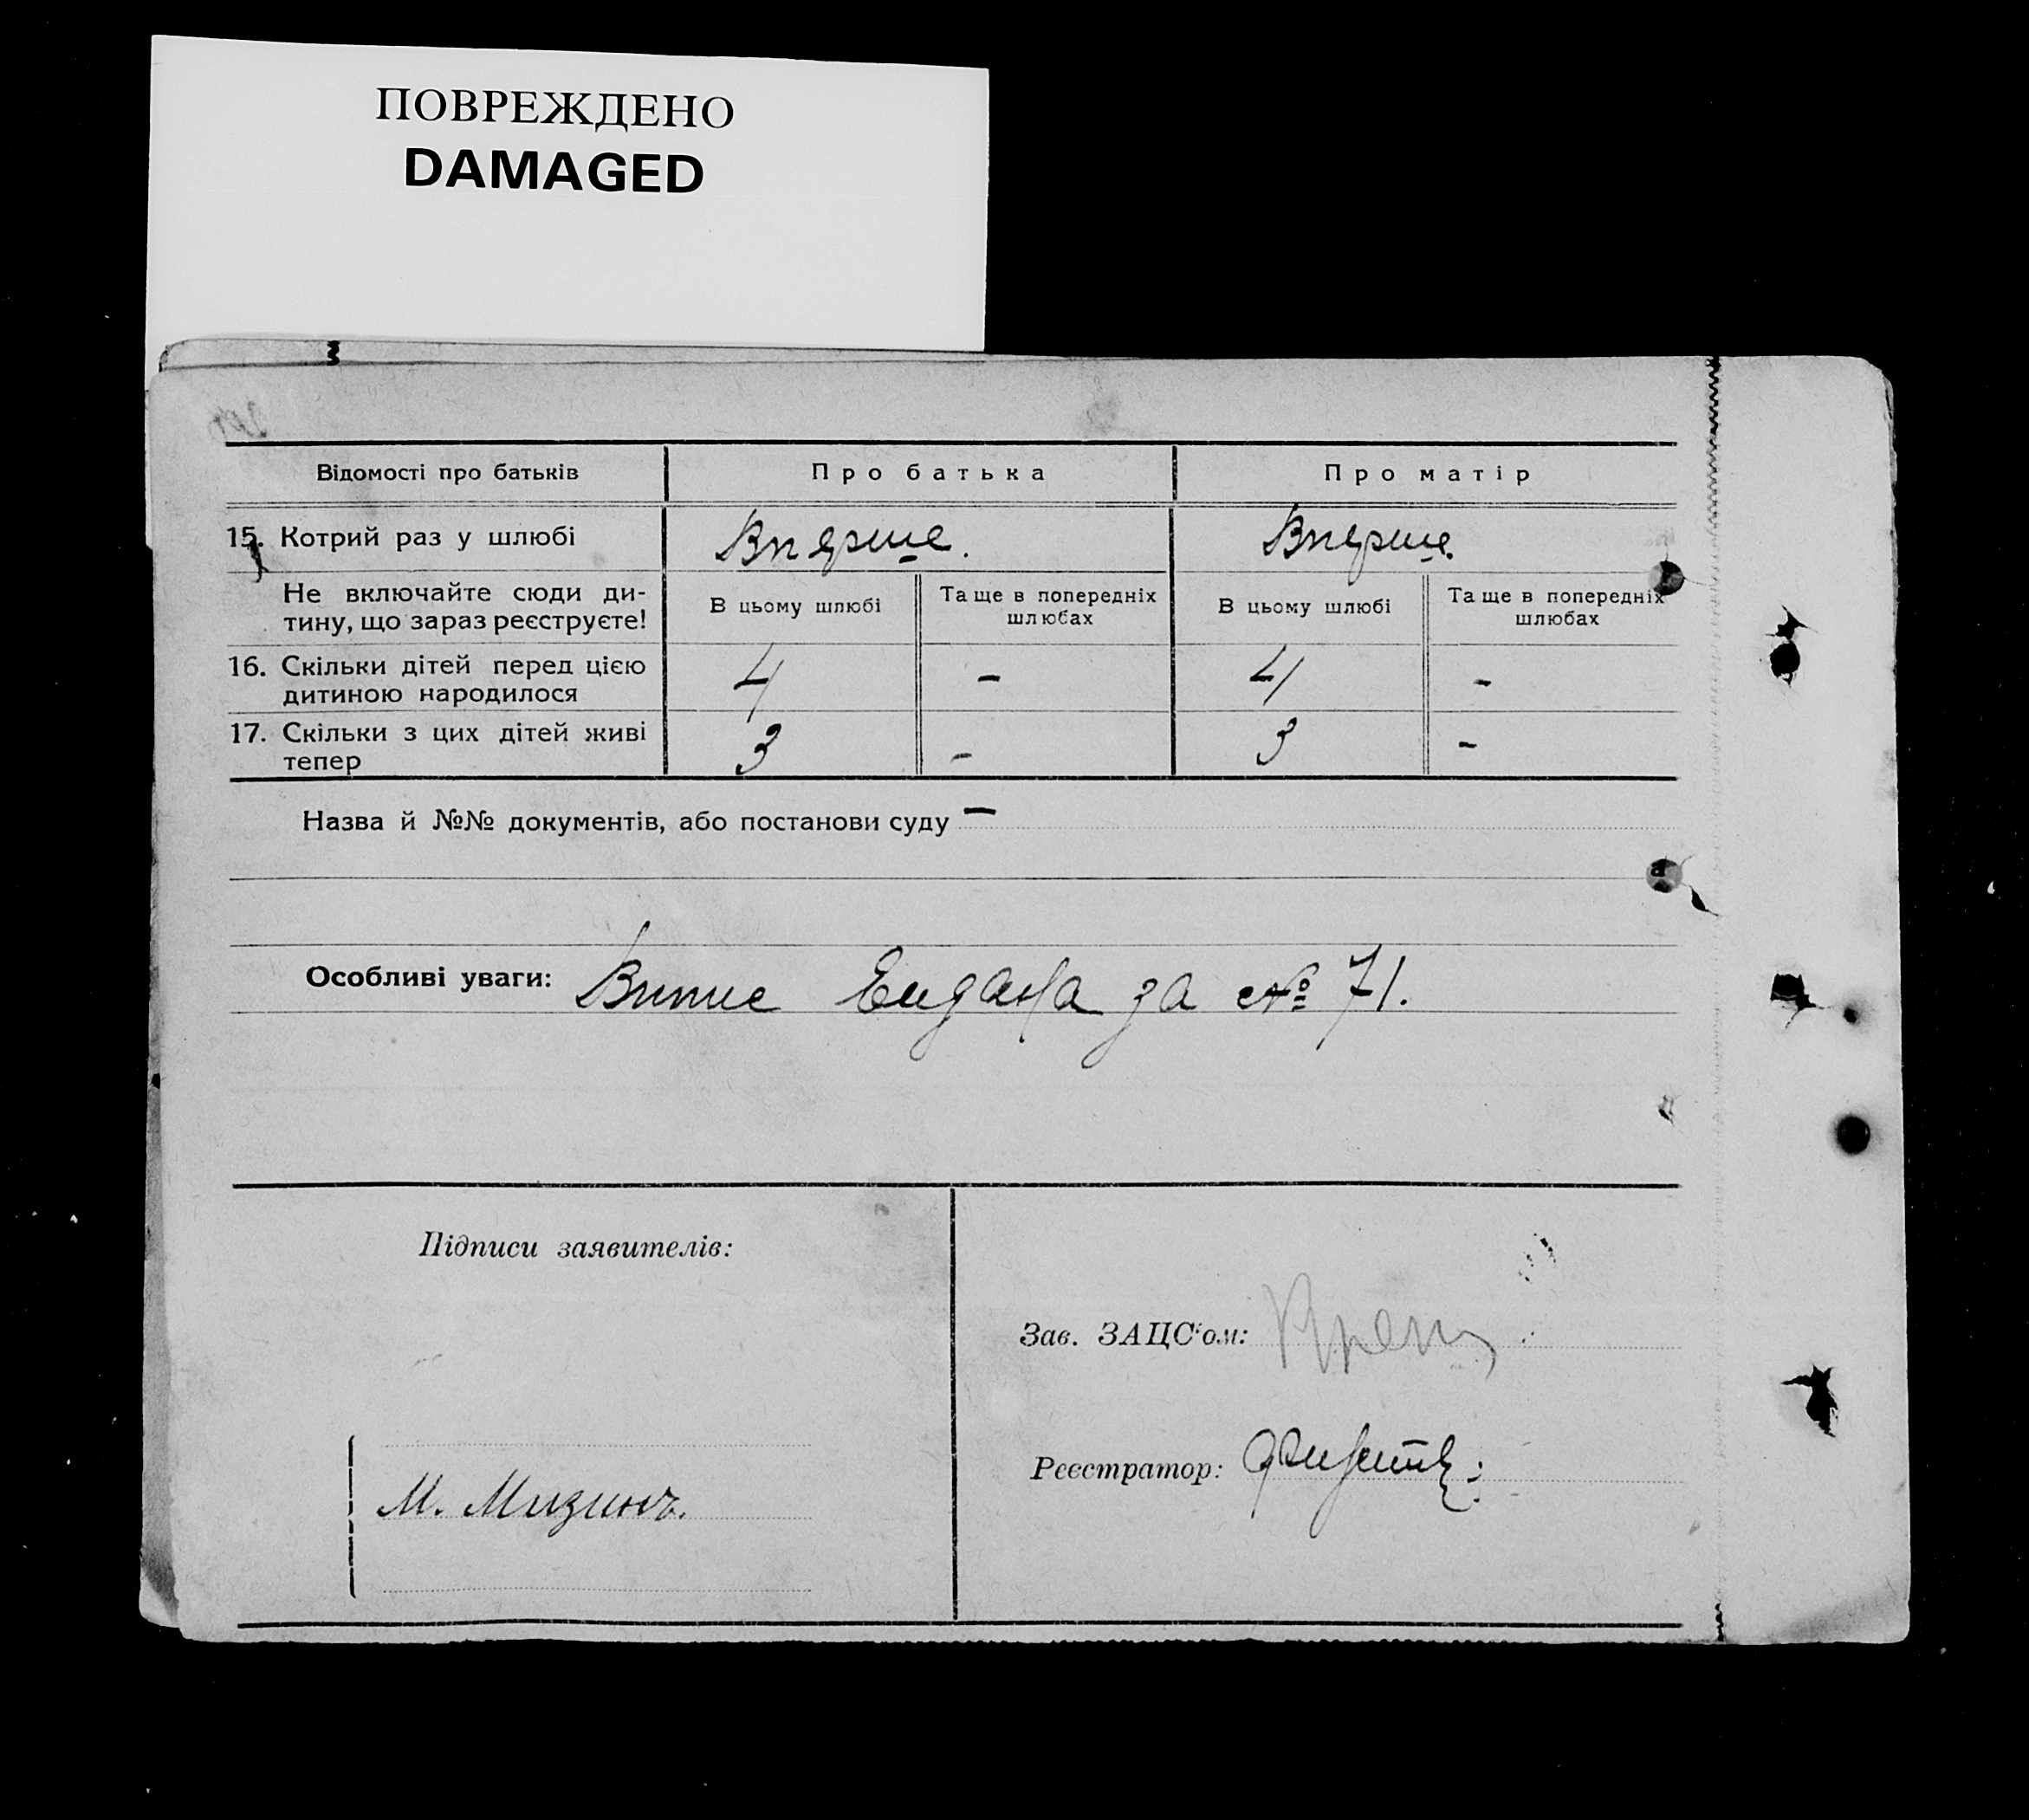 ПОВРЕЖДЕНО
DAMAGED
Відомості про батьків Про батька Про матір
15. Котрий раз у шлюбі Вперше. Вперше.
Не включайте сюди ди-
тину, що зараз реєструєте!
В цьому шлюбі Та ще в попередніх шлюбах В цьому шлюбі Та ще в попередніх шлюбах
16. Скільки дітей перед цією
дитиною народилося 4 – 4 –
17. Скільки з цих дітей живі
тепер 3 – 3 –
Назва й №№ документів, або постанови суду –
Особливі уваги: Випис видана за № 71.
Підписи заявителів:
Зав. ЗАЦС'ом:
Реєстратор:
М. Мизинъ.